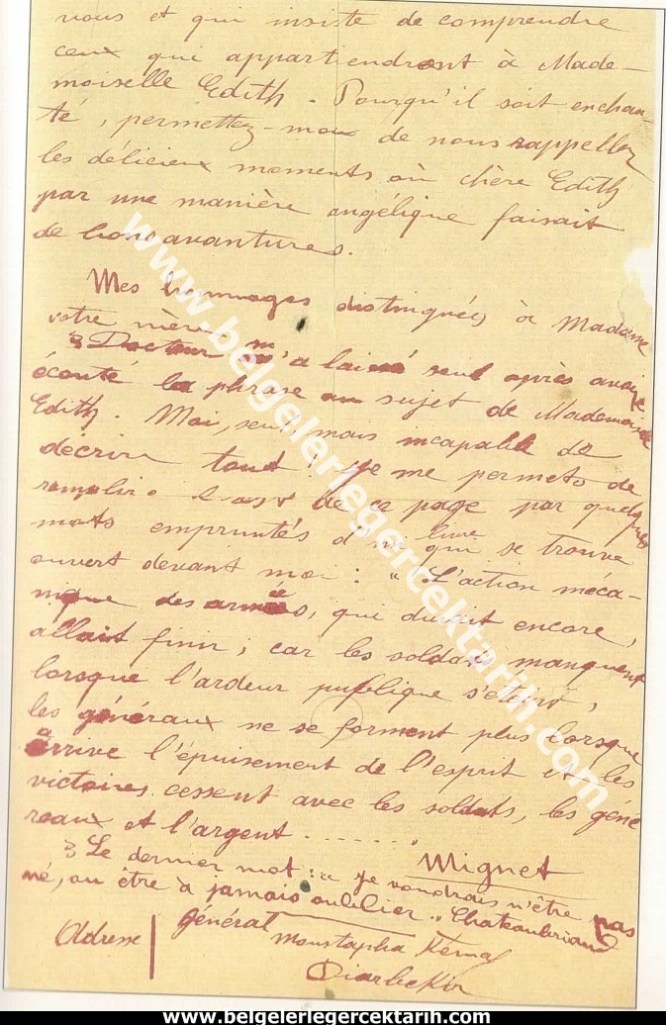 vous et qui insiste de comprendre
ceux qui appartiendront à Made-
moiselle Edith. Pourqu'il soit enchan-
té, permettez-moi de nous rappeller
les délicieux moments où chère Edith
par une manière angélique faisait
de bons avantures.
Mes hommages distingués à Madame
votre mère
Docteur m'a laissé seul après avoir
écouté la phrase au sujet de Mademoiselle
Edith. Moi, seul mais incapable de
décrire tout! Je me permets de
remplir de ce page par quelques
mots empruntés d'un livre qui se trouve
ouvert devant moi : "L'action méca-
nique des armées, qui durait encore,
allait finir; car les soldats manquent
lorsque l'ardeur publique s'éteint,
les généraux ne se forment plus lorsque
arrive l'épuisement de l'esprit et les
victoires cessent avec les soldats, les géné
raux et l'argent.......
Mignet
Le dernier mot : "Je voudrais n'être pas
né, ou être à jamais oublier" Chateaubriand
Adresse
Général
Moustapha Kémal
Diarbekir
www.belgelerlegercektarih.com
www.belgelerlegercektarih.com